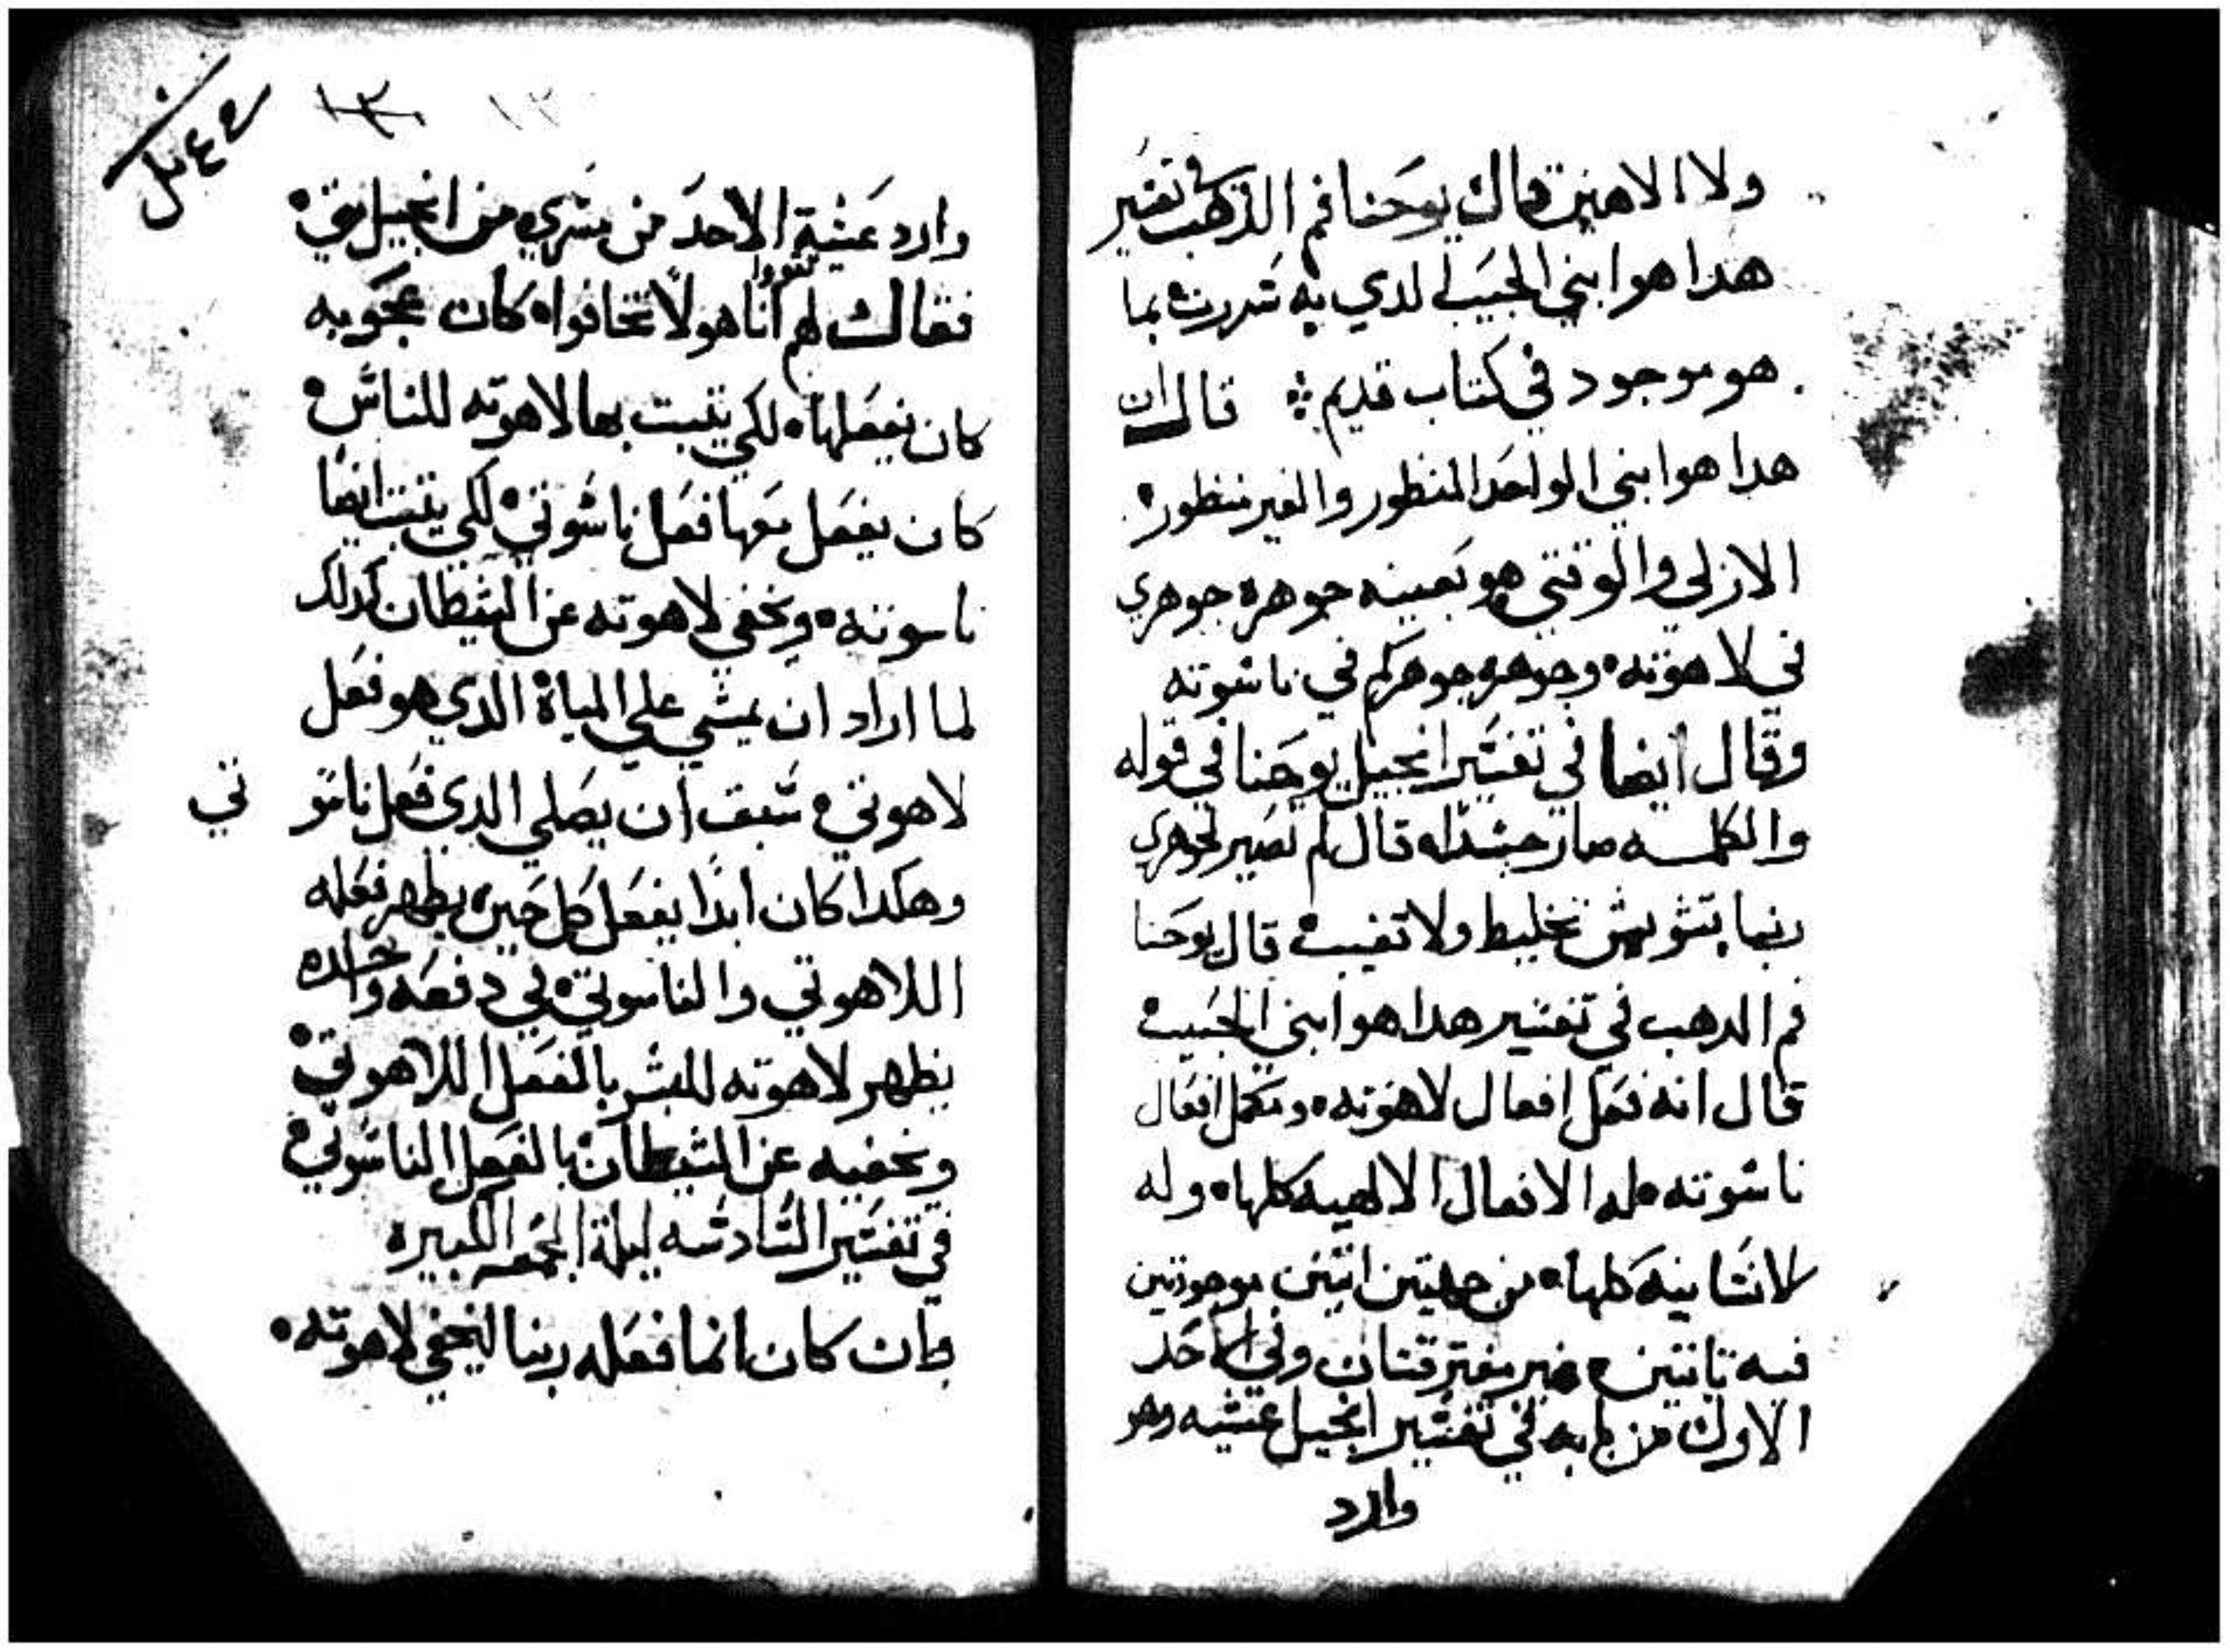 ولا الاهين قال يوحنا فم الدهب في تفسير
هدا هو ابني الحبيب الدي به سررت بما
هو موجود في كتاب قديم قال ان
هدا هو ابني الواحد المنظور والغير منظور
الازلي والوقتي هو بعينه جوهره جوهري
في لاهوته وجوهره جوهركم في ناسوته
وقال ايضا في تفسير انجيل يوحنا في قوله
والكلمه صار جسدا قال لم تصير
بتشويش تخليط ولا تغيير قال يوحنا
فم الدهب في تفسير هدا هو ابني الحبيب
قال انه فعل افعال لاهوته وتكمل افعال
ناسوته له الافعال الالاهيه كلها وله
الانسانيه كلها من جهتين اتنين موجودتين
فيه تابتين غير مفترقتان وفي الاحد
الاول من بابه في تفسير انجيل عشيه وهو
وارد
١٣ ١٢
وارد عشية الاحد من بشري من انجيل متي
فقال لهم تقووا انا هو لا تخافوا كان عجوبه
كان يفعلها لكي يتبت بها لاهوته للناس
كان يفعل معها فعل ناسوتي لكي يتبت ايضا
ناسوته ويخفي لاهوته عن الشيطان كدلك
لما اراد ان يمشي علي المياة الدي هو فعل
لاهوتي سبق ان يصلي الدي فعل ناسو تي
وهكدا كان ابدا يفعل كل حين يظهر فعله
اللاهوتي والناسوتي في دفعه واحده
يظهر لاهوته للبشر بالفعل اللاهوتي
ويخفيه عن الشيطان بالفعل الناسوتي
في تفسير السادسه ليلة الجمعه الكبيره
وان كان انما فعله ربنا ليخفي لاهوته